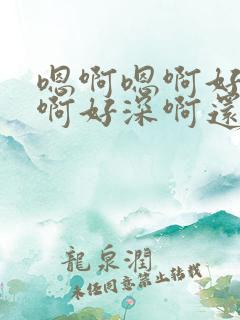 嗯啊嗯啊好
啊好深啊還
龍泉潤
未经同意禁止转载